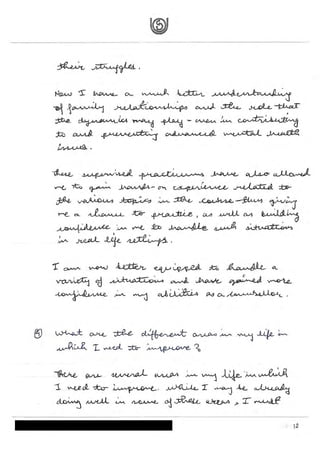 their struggles.
Now I have a much better understanding
of family relationships and the role that
the dynamics may play - even in contributing
to and preventing advanced mental health
issues.
These supervised practicums have also allowed
me to gain hands-on experience related to
the various topics in the course - thus giving
me a chance to practice, as well as building
confidence in me to handle such situations
in real life settings.
I am now better equipped to handle a
variety of situations and have gained more
confidence in my abilities as a counsellor.
⑤ What are the different areas in my life in
which I need to improve?
There are several areas in my life in which
I need to improve. While I may be already
doing well in some of these areas, I must
12